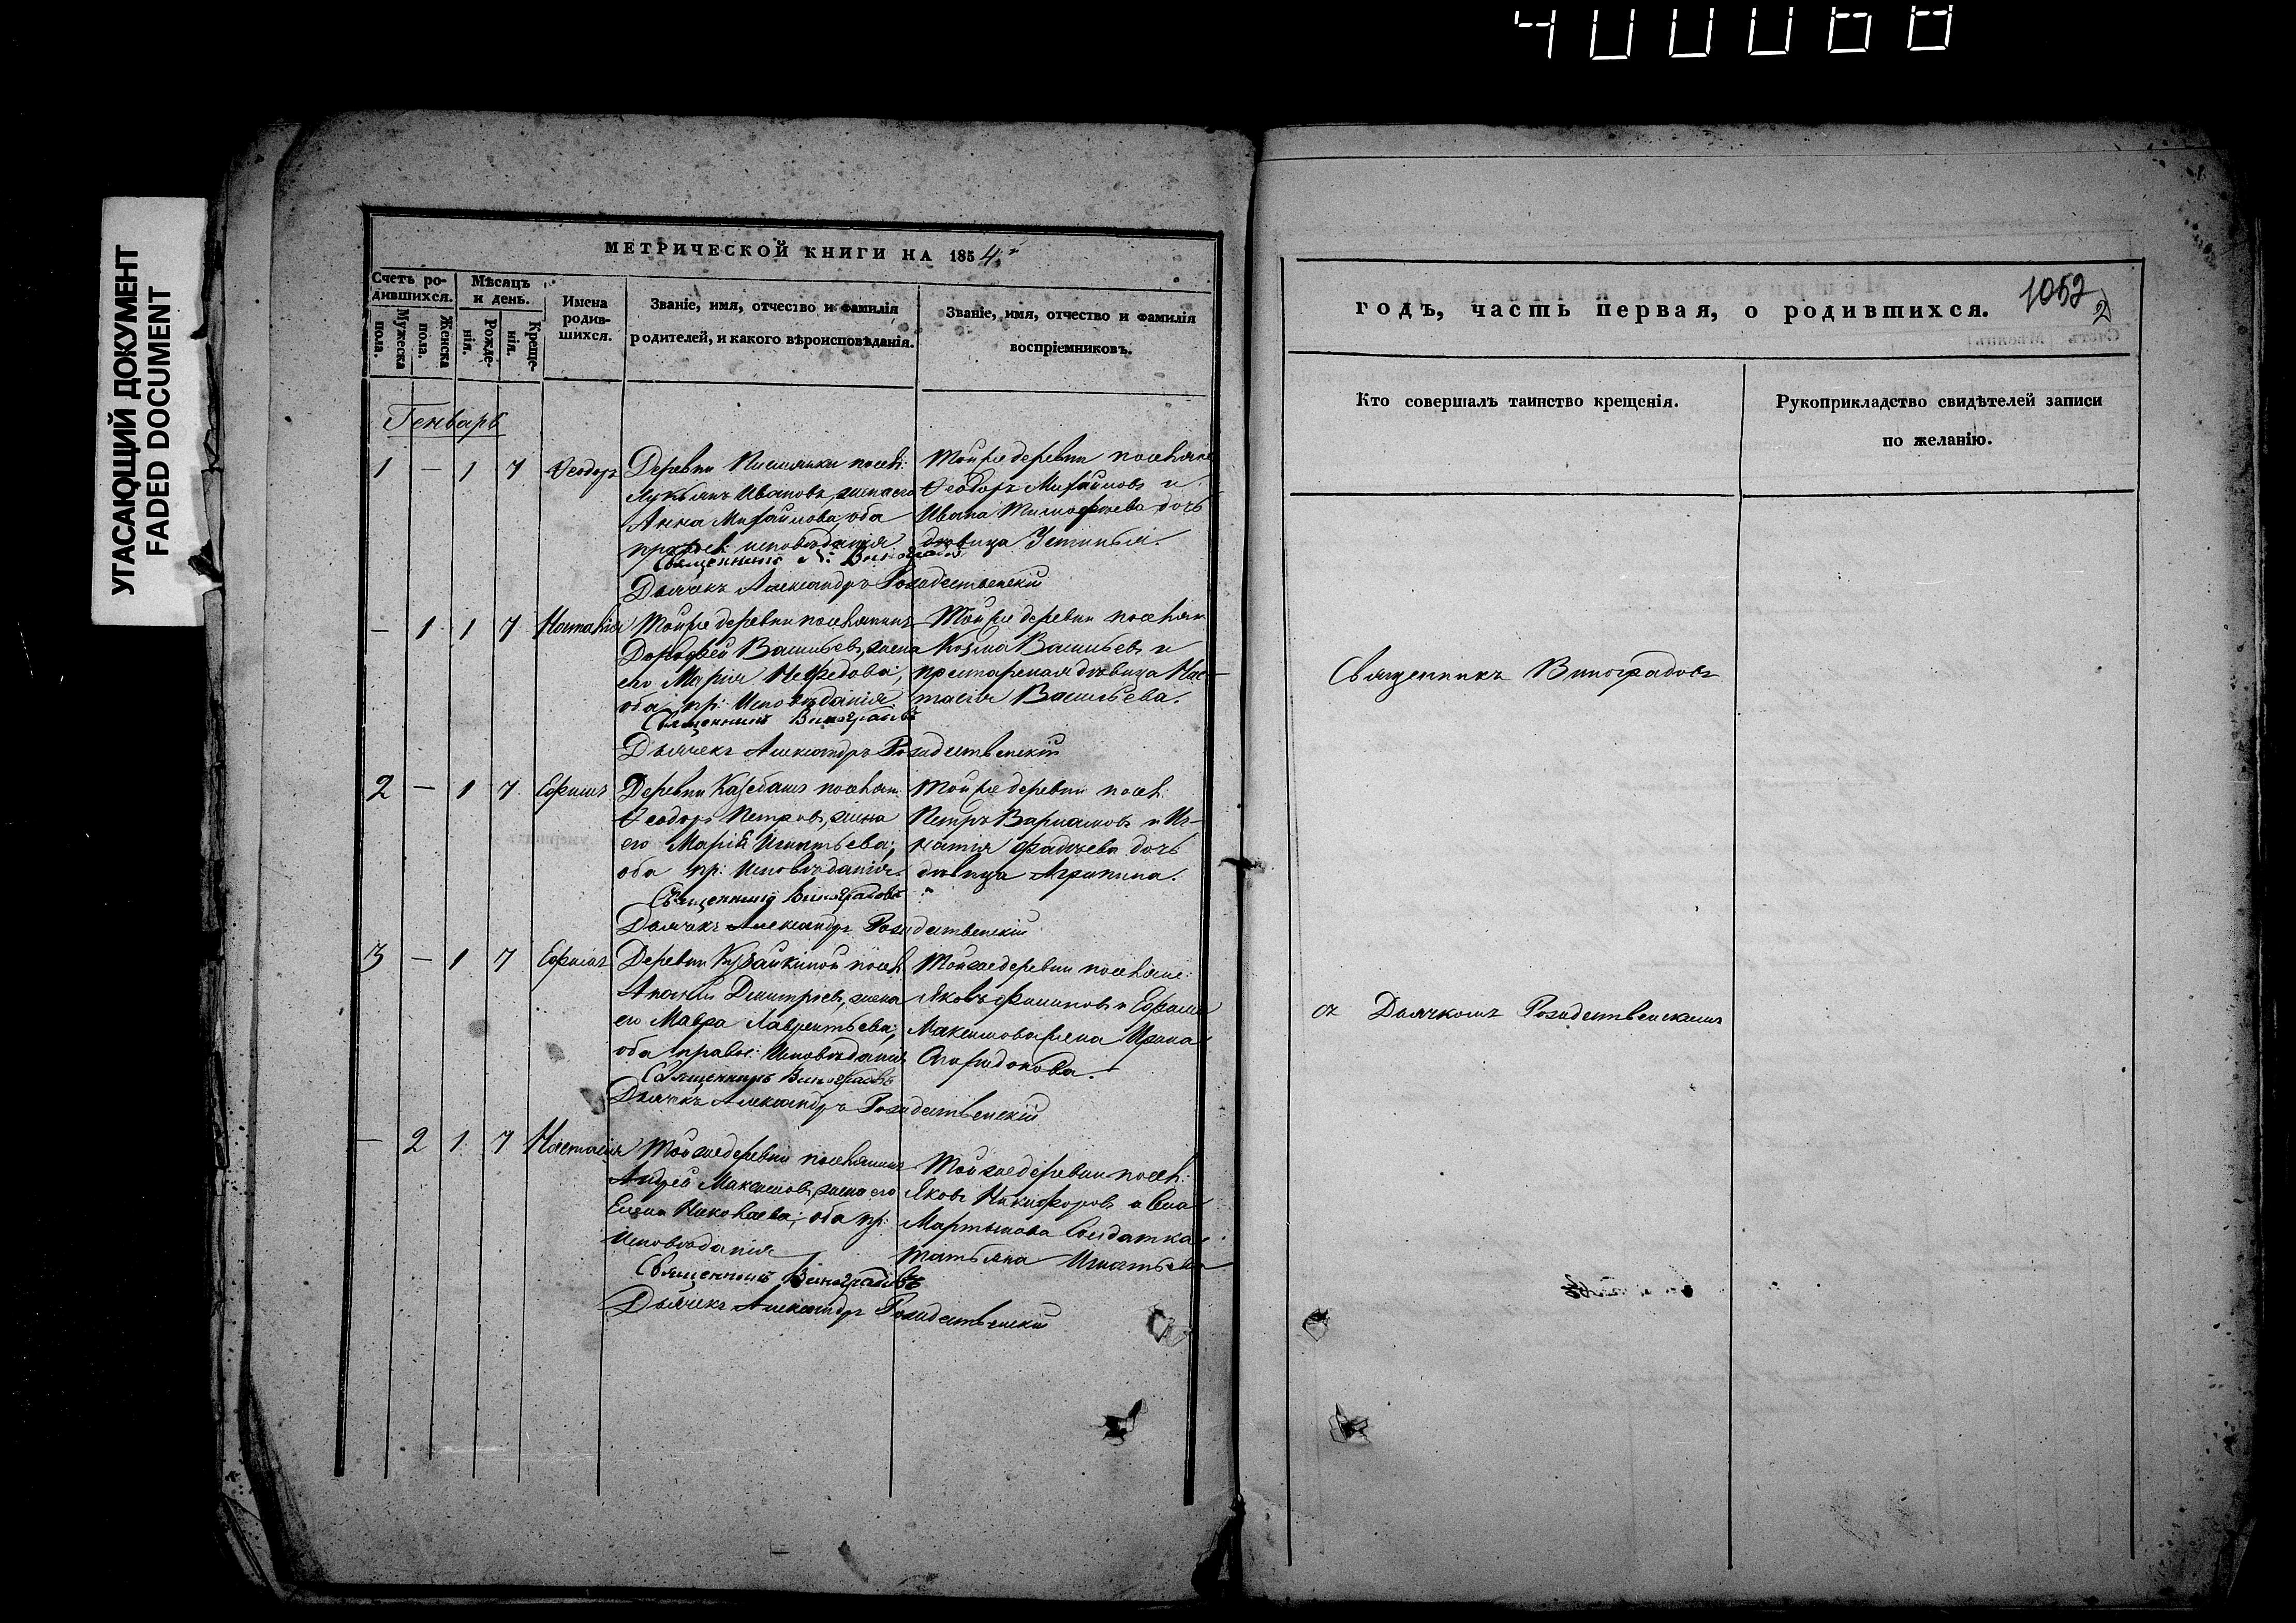 400068
УГАСАЮЩИЙ ДОКУМЕНТ
FADED DOCUMENT
МЕТРИЧЕСКОЙ КНИГИ НА 1854
Счетъ ро-
дившихся.
Мужеска
пола.
Женска
пола.
Мѣсяцъ
и день.
Рожде-
нія.
Креще-
нія.
Имена
родив-
шихся.
Званіе, имя, отчество и фамилія
родителей, и какого вѣроисповѣданія.
Званіе, имя, отчество и фамилія
воспріемниковъ.
Генварь
1 — 1 7 Ѳеодоръ
Деревни посел:
Лукьянъ Ивановъ, жена его
Анна Михайлова, оба
правосл: исповѣданія
Тойже деревни поселяне
Ѳеодоръ Михайловъ и
Ивана Тимофѣева дочь
дѣвица Устинья.
Священникъ Виноградовъ
Дьячекъ Александръ Рождественскій
— 1 1 7 Наталія
Тойже деревни поселянинъ
Дороѳей Васильевъ, жена
его Марія Нефедова,
оба пр: Исповѣданія
Тойже деревни поселян:
Козма Васильевъ и
престарелая дѣвица Нас-
тасія Васильева.
Священникъ Виноградовъ
Дьячекъ Александръ Рождественскій
2 — 1 7 Ефимъ
Деревни поселян:
Ѳеодоръ Петровъ, жена
его Марія Игнатьева;
оба пр: Исповѣданія.
Тойже деревни посел:
Петръ Варламовъ и Иг-
натія Фадѣева дочь
дѣвица Агрипина.
Священникъ Виноградовъ
Дьячекъ Александръ Рождественскій
3 — 1 7 Ефимъ
Деревни посел:
Ананій Дмитріевъ, жена
его Мавра Лаврентьева;
оба правос: Исповѣданія
Тойже деревни поселяне:
Яковъ Филиповъ и Ефима
Максимова жена Ирина
Спиридонова.
Священникъ Виноградовъ
Дьячекъ Александръ Рождественскій
— 2 1 7 Настасія
Тойже деревни поселянинъ
Андрей Максимовъ, жена его
Елена Николаева; оба пр:
Исповѣданія
Тойже деревни посел:
Яковъ Никифоровъ и
Мартынова Солдатка
Татьяна Игнатьева
Священникъ Виноградовъ
Дьячекъ Александръ Рождественскій
годъ, часть первая, о родившихся.
1052
2
Кто совершалъ таинство крещенія.
Рукоприкладство свидѣтелей записи
по желанію.
Священникъ Виноградовъ
съ Дьячкомъ Рождественскимъ